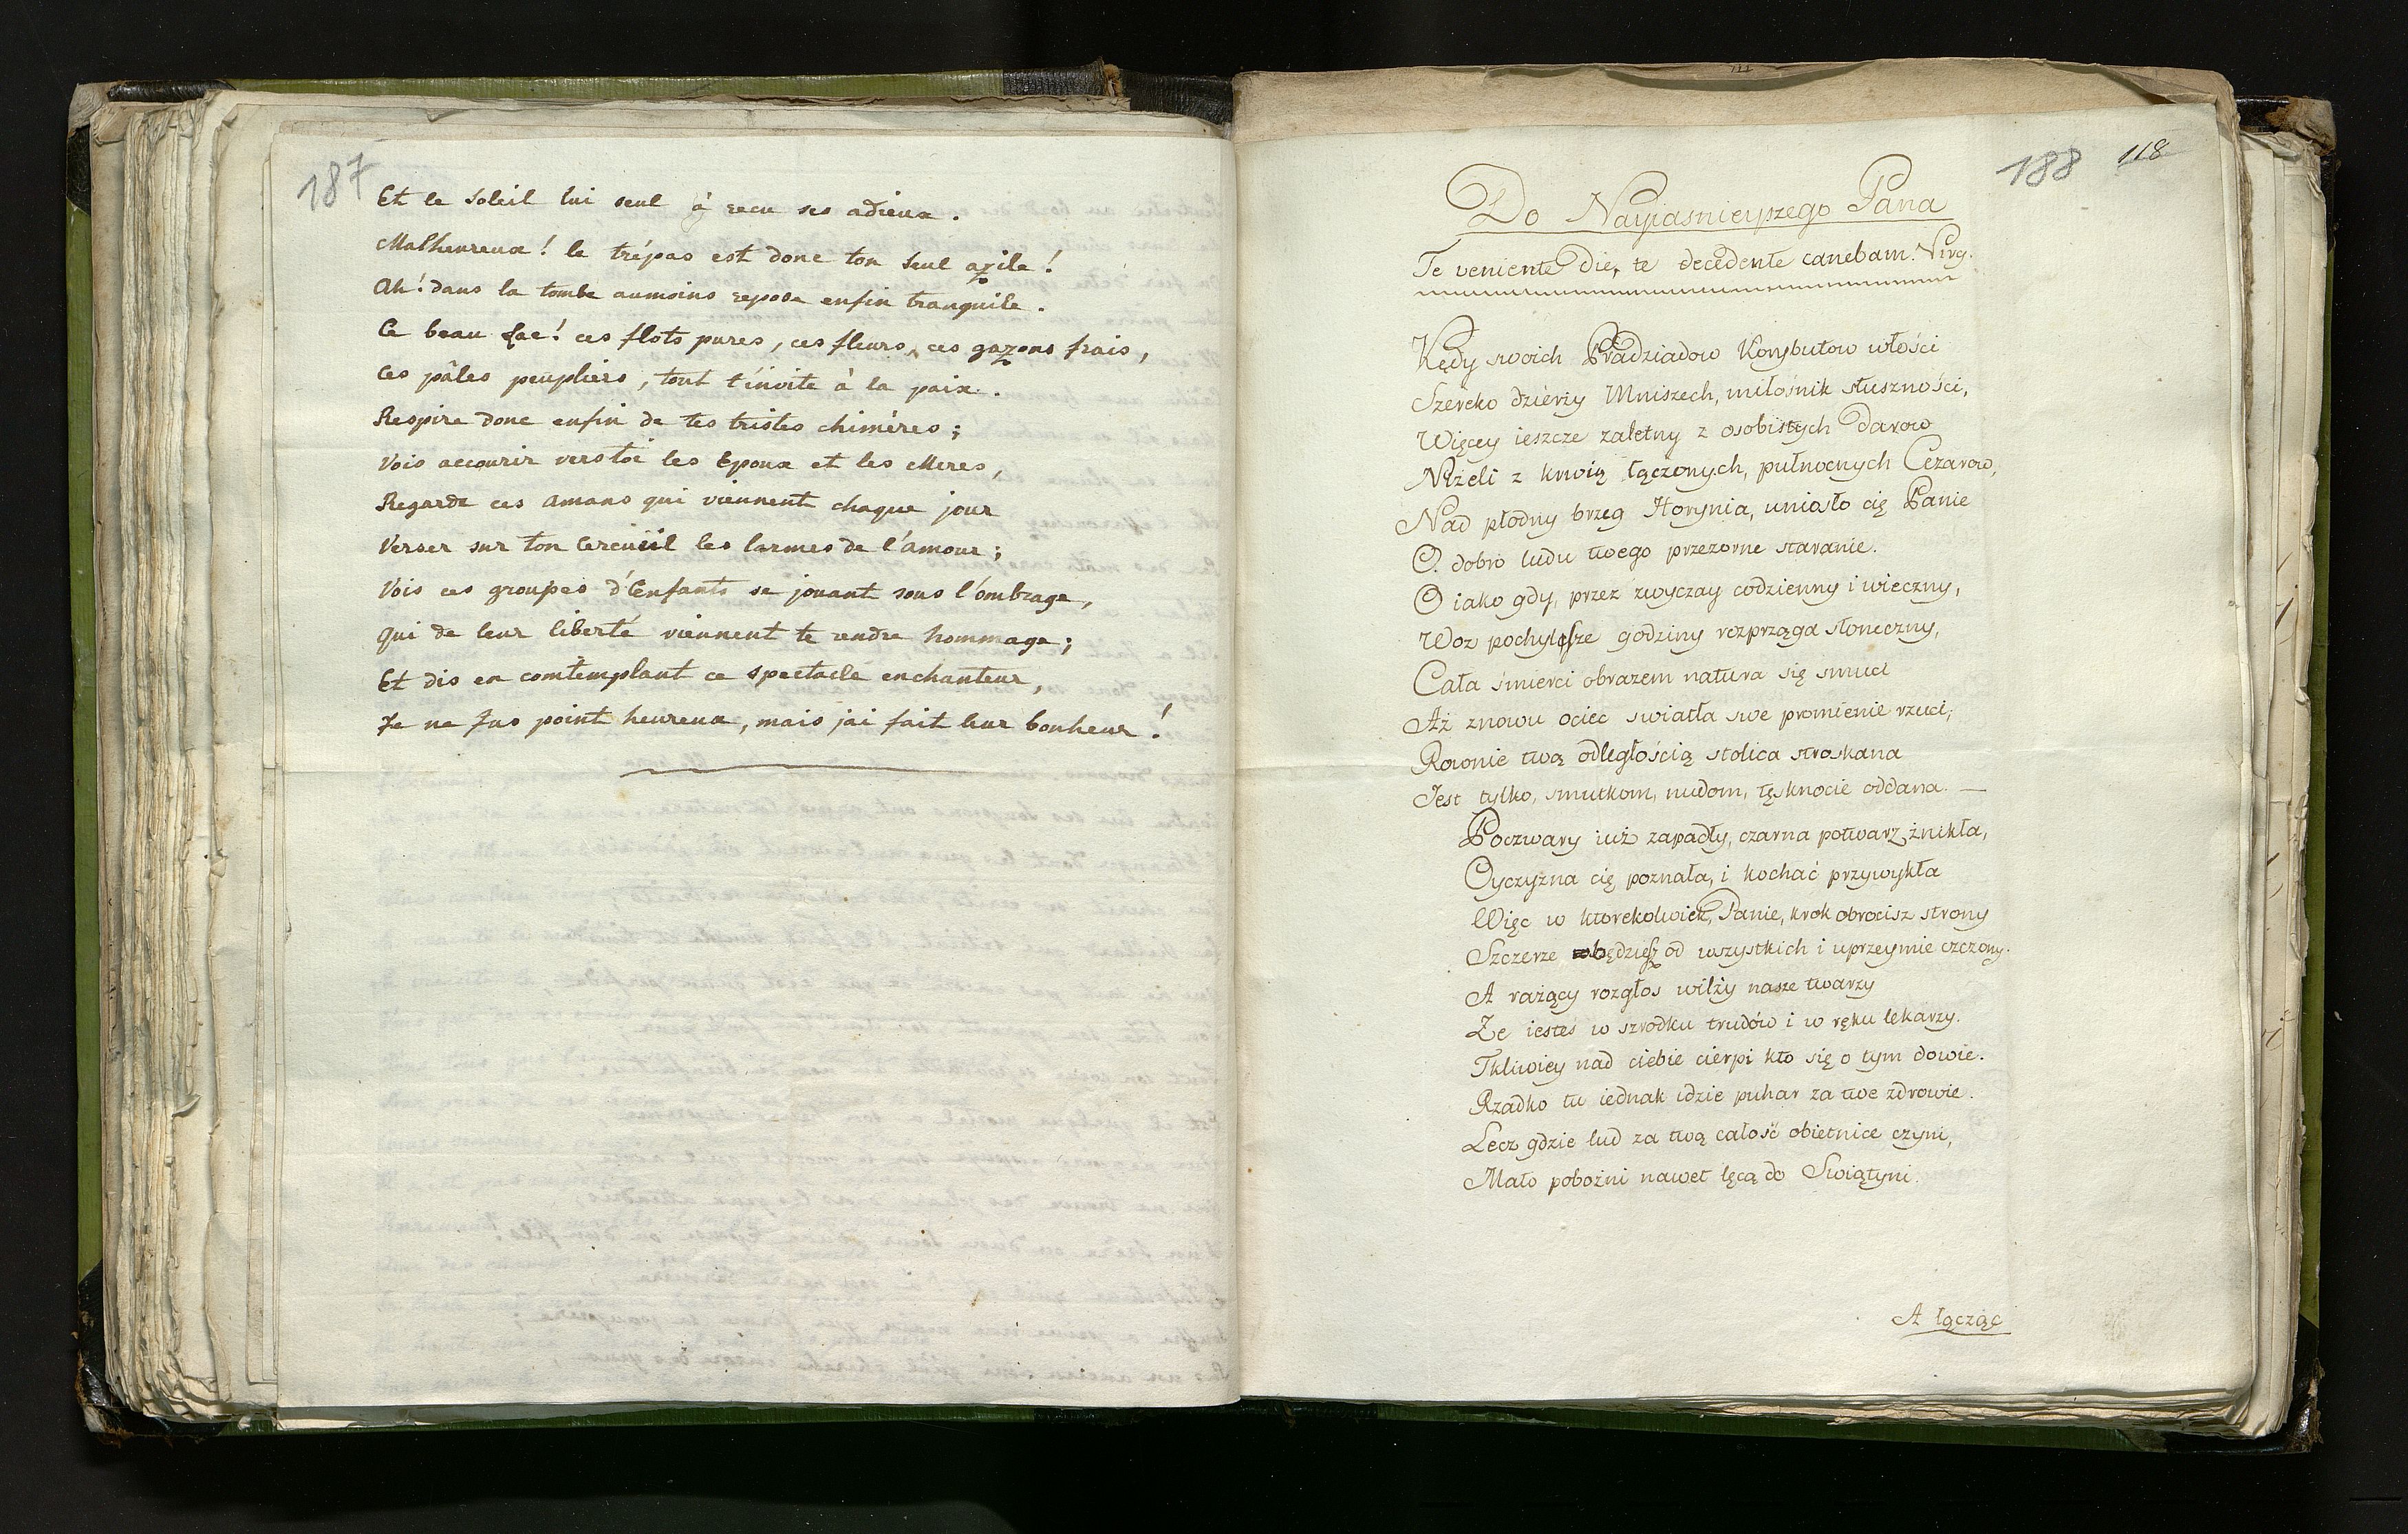 187
Et le Soleil lui seul à recu ses adieux.
Malheureux! le trépas est donc ton seul azile!
Ah! dans la tombe aumoins repose enfin tranquile.
Ce beau Lac! ces flots pures, ces fleurs, ces gazons frais,
Ces pâles peupliers, tout t'invite à la paix.
Respire donc enfin de tes tristes chimères;
Vois accourir vers toi les Epoux et les Meres,
Regarde ces amans qui viennent chaque jour
Verser sur ton Cercüeil les larmes de l'amour;
Vois ces groupes d'Enfants se jouant sous l'ombrage,
qui de leur liberté viennent te rendre hommage;
Et dis en comtemplant ce spectacle enchanteur,
Je ne fus point heureux, mais jai fait leur bonheur!
188 118
Do Nayiasnieyszego Pana
Te veniente die, te decedente canebam. Virg.
Kędy swoich Pradziadow Korybutow włości
Szeroko dzierży Mniszech, miłośnik słuszności,
Więcey ieszcze zaletny z osobistych darow
Niżeli z krwią łączonych, pułnocnych Cezarow,
Nad płodny brzeg Horynia, uniosło cię Panie
O dobro ludu twego przezorne staranie.
O iako gdy, przez zwyczay codzienny i wieczny,
Woz pochylsze godziny rozprząga słoneczny,
Cała śmierci obrazem natura się smuci
Aż znowu ociec swiatła swe promienie rzuci;
Rownie twą odległością stolica stroskana
Jest tylko, smutkom, nudom, tęsknocie oddana. —
Poczwary iuż zapadły, czarna potwarz znikła,
Oyczyzna cię poznała, i kochać przywykła
Więc w ktorekolwiek, Panie, krok obrocisz strony
Szczerze będziesz od wszystkich i uprzeymie czczony.
A rażący rozgłos wilży nasze twarzy
Ze iesteś w szrodku trudów i w ręku lekarzy.
Tkliwiey nad ciebie cierpi kto się o tym dowie.
Rzadko tu iednak idzie puhar za twe zdrowie.
Lecz gdzie lud za twą całość obietnice czyni,
Mało pobożni nawet lęcą do Swiątyni.
A łącząc